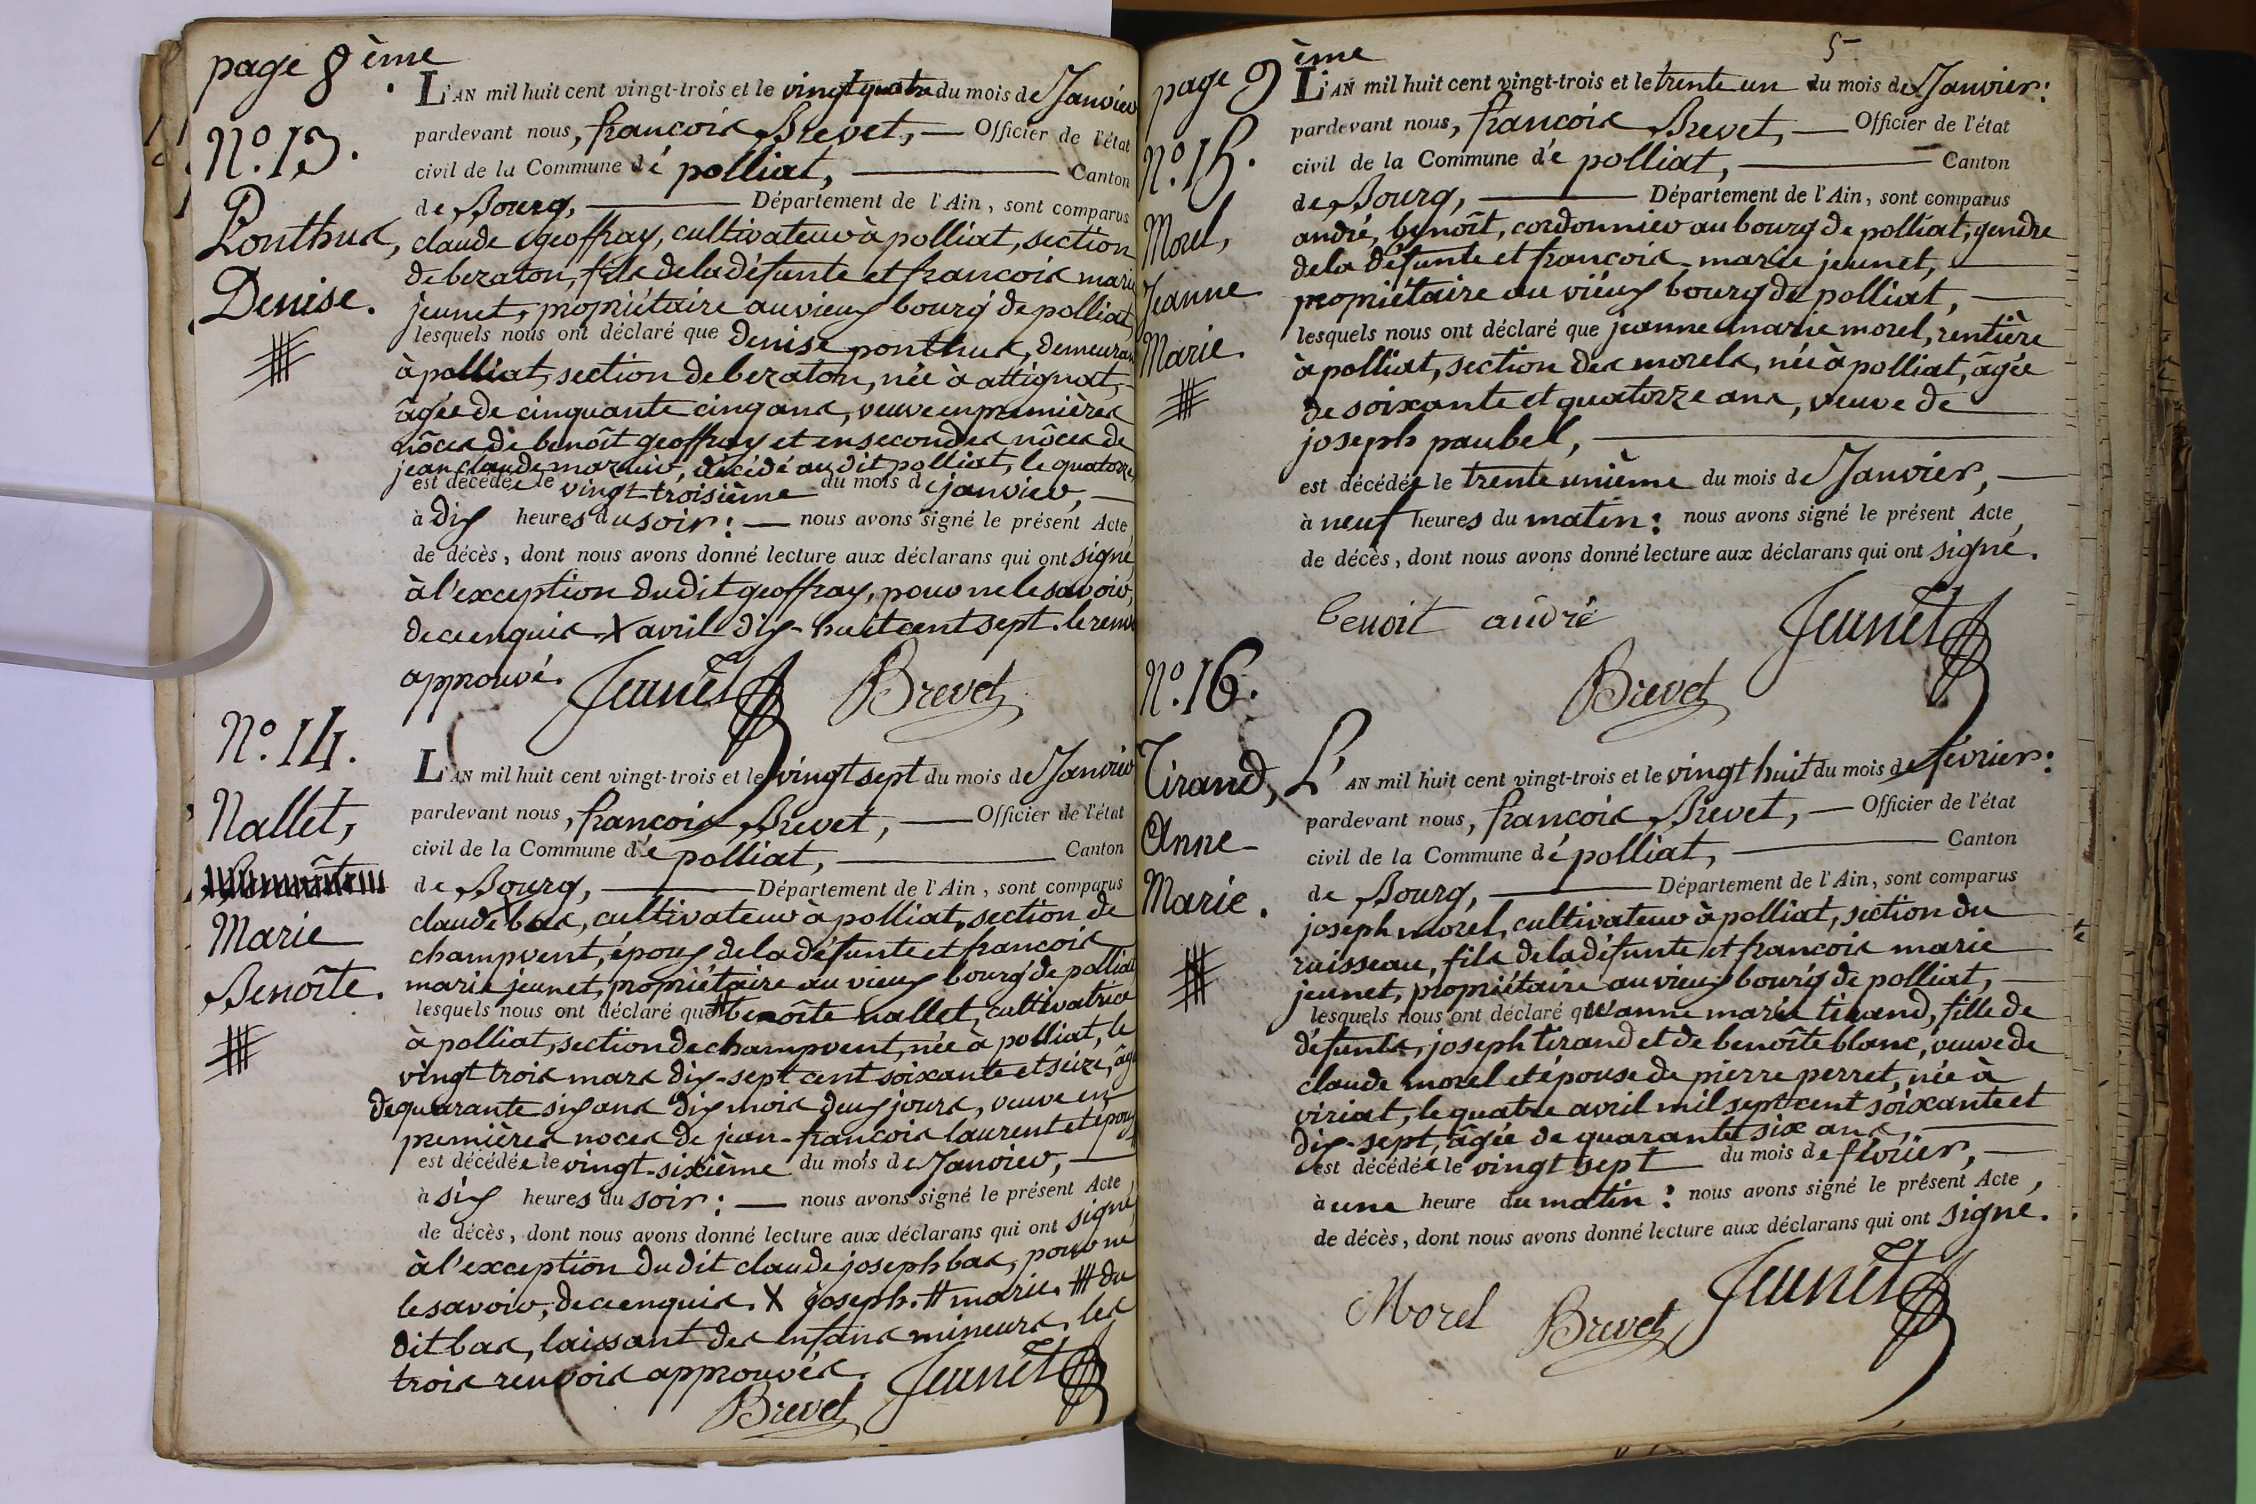 page 8 ème
N.º 13.
Ponthus,
Denise.
L'AN mil huit cent vingt-trois et le vingt quatre du mois de Janvier
pardevant nous, francois Brevet, — Officier de l'état
civil de la Commune dé polliat, — Canton
de Bourg, — Département de l'Ain, sont comparus
claude geoffray, cultivateur à polliat, section
de bezaton, fils de la défunte et francois marie
jeunet, propriétaire au vieux bourg de polliat,
lesquels nous ont déclaré que denise ponthus, demeurant
à polliat, section de bezaton, née à attignat,
âgée de cinquante cinq ans, veuve en premières
nôces de benoît geoffray et en secondes nôces de
jean claude décédé au dit polliat, le quatorze
est décédée le vingt troisième du mois de janvier, —
à dix heures du soir : — nous avons signé le présent Acte
de décès, dont nous avons donné lecture aux déclarans qui ont signé,
à l'exception du dit geoffray, pour ne le savoir,
de ce enquis. X avril dix-huit cent sept. le renvoi
approuvé. Jeunet Brevet
N.º 14.
Nallet,
Marie
Benoîte.
L'AN mil huit cent vingt-trois et le vingt sept du mois de Janvier
pardevant nous, francois Brevet, — Officier de l'état
civil de la Commune dé polliat, — Canton
de Bourg, — Département de l'Ain, sont comparus
claude X bas, cultivateur à polliat, section de
champvent, époux de la défunte et francois
marie jeunet, propriétaire au vieux bourg de polliat
lesquels nous ont déclaré que # benoîte nallet, cultivatrice
à polliat, section de champvent, née à polliat, le
vingt trois mars dix-sept cent soixante et seize, âgée
de quarante six ans dix mois deux jours, veuve en
premières noces de jean-francois laurent et épouse
est décédée le vingt-sixième du mois de Janvier, —
à six heures du soir : — nous avons signé le présent Acte,
de décès, dont nous avons donné lecture aux déclarans qui ont signé,
à l'exception du dit claude joseph bas, pour ne
le savoir, de ce enquis. X joseph. # marie. ## du
dit bas, laissant des enfans mineurs, les
trois renvois approuvés.
Brevet Jeunet
5
page 9 ème
N.º 15.
Morel,
Jeanne
Marie.
L'AN mil huit cent vingt-trois et le trente un du mois de Janvier :
pardevant nous, francois Brevet, — Officier de l'état
civil de la Commune dé polliat, — Canton
de Bourg, — Département de l'Ain, sont comparus
andré, benoît, cordonnier au bourg de polliat, gendre
de la défunte et francois-marie jeunet, —
propriétaire au vieux bourg de polliat, —
lesquels nous ont déclaré que jeanne marie morel, rentière
à polliat, section des morels, née à polliat, âgée
de soixante et quatorze ans, veuve de
joseph paubel, —
est décédée le trente unième du mois de Janvier, —
à neuf heures du matin : nous avons signé le présent Acte,
de décès, dont nous avons donné lecture aux déclarans qui ont signé.
benoit andré Jeunet
Brevet
N.º 16.
Tirand,
Anne
Marie.
L'AN mil huit cent vingt-trois et le vingt huit du mois de février :
pardevant nous, francois Brevet, — Officier de l'état
civil de la Commune dé polliat, — Canton
de Bourg, — Département de l'Ain, sont comparus
joseph morel, cultivateur à polliat, section du
ruisseau, fils de la défunte et francois marie
jeunet, propriétaire au vieux bourg de polliat, —
lesquels nous ont déclaré qu'anne marie tirand, fille de
défunts, joseph tirand et de benoîte blanc, veuve de
claude morel et épouse de pierre perret, née à
viriat, le quatre avril mil sept cent soixante et
dix-sept, âgée de quarante six ans, —
est décédée le vingt sept du mois de février, —
à une heure du matin : nous avons signé le présent Acte,
de décès, dont nous avons donné lecture aux déclarans qui ont signé.
Morel Brevet Jeunet